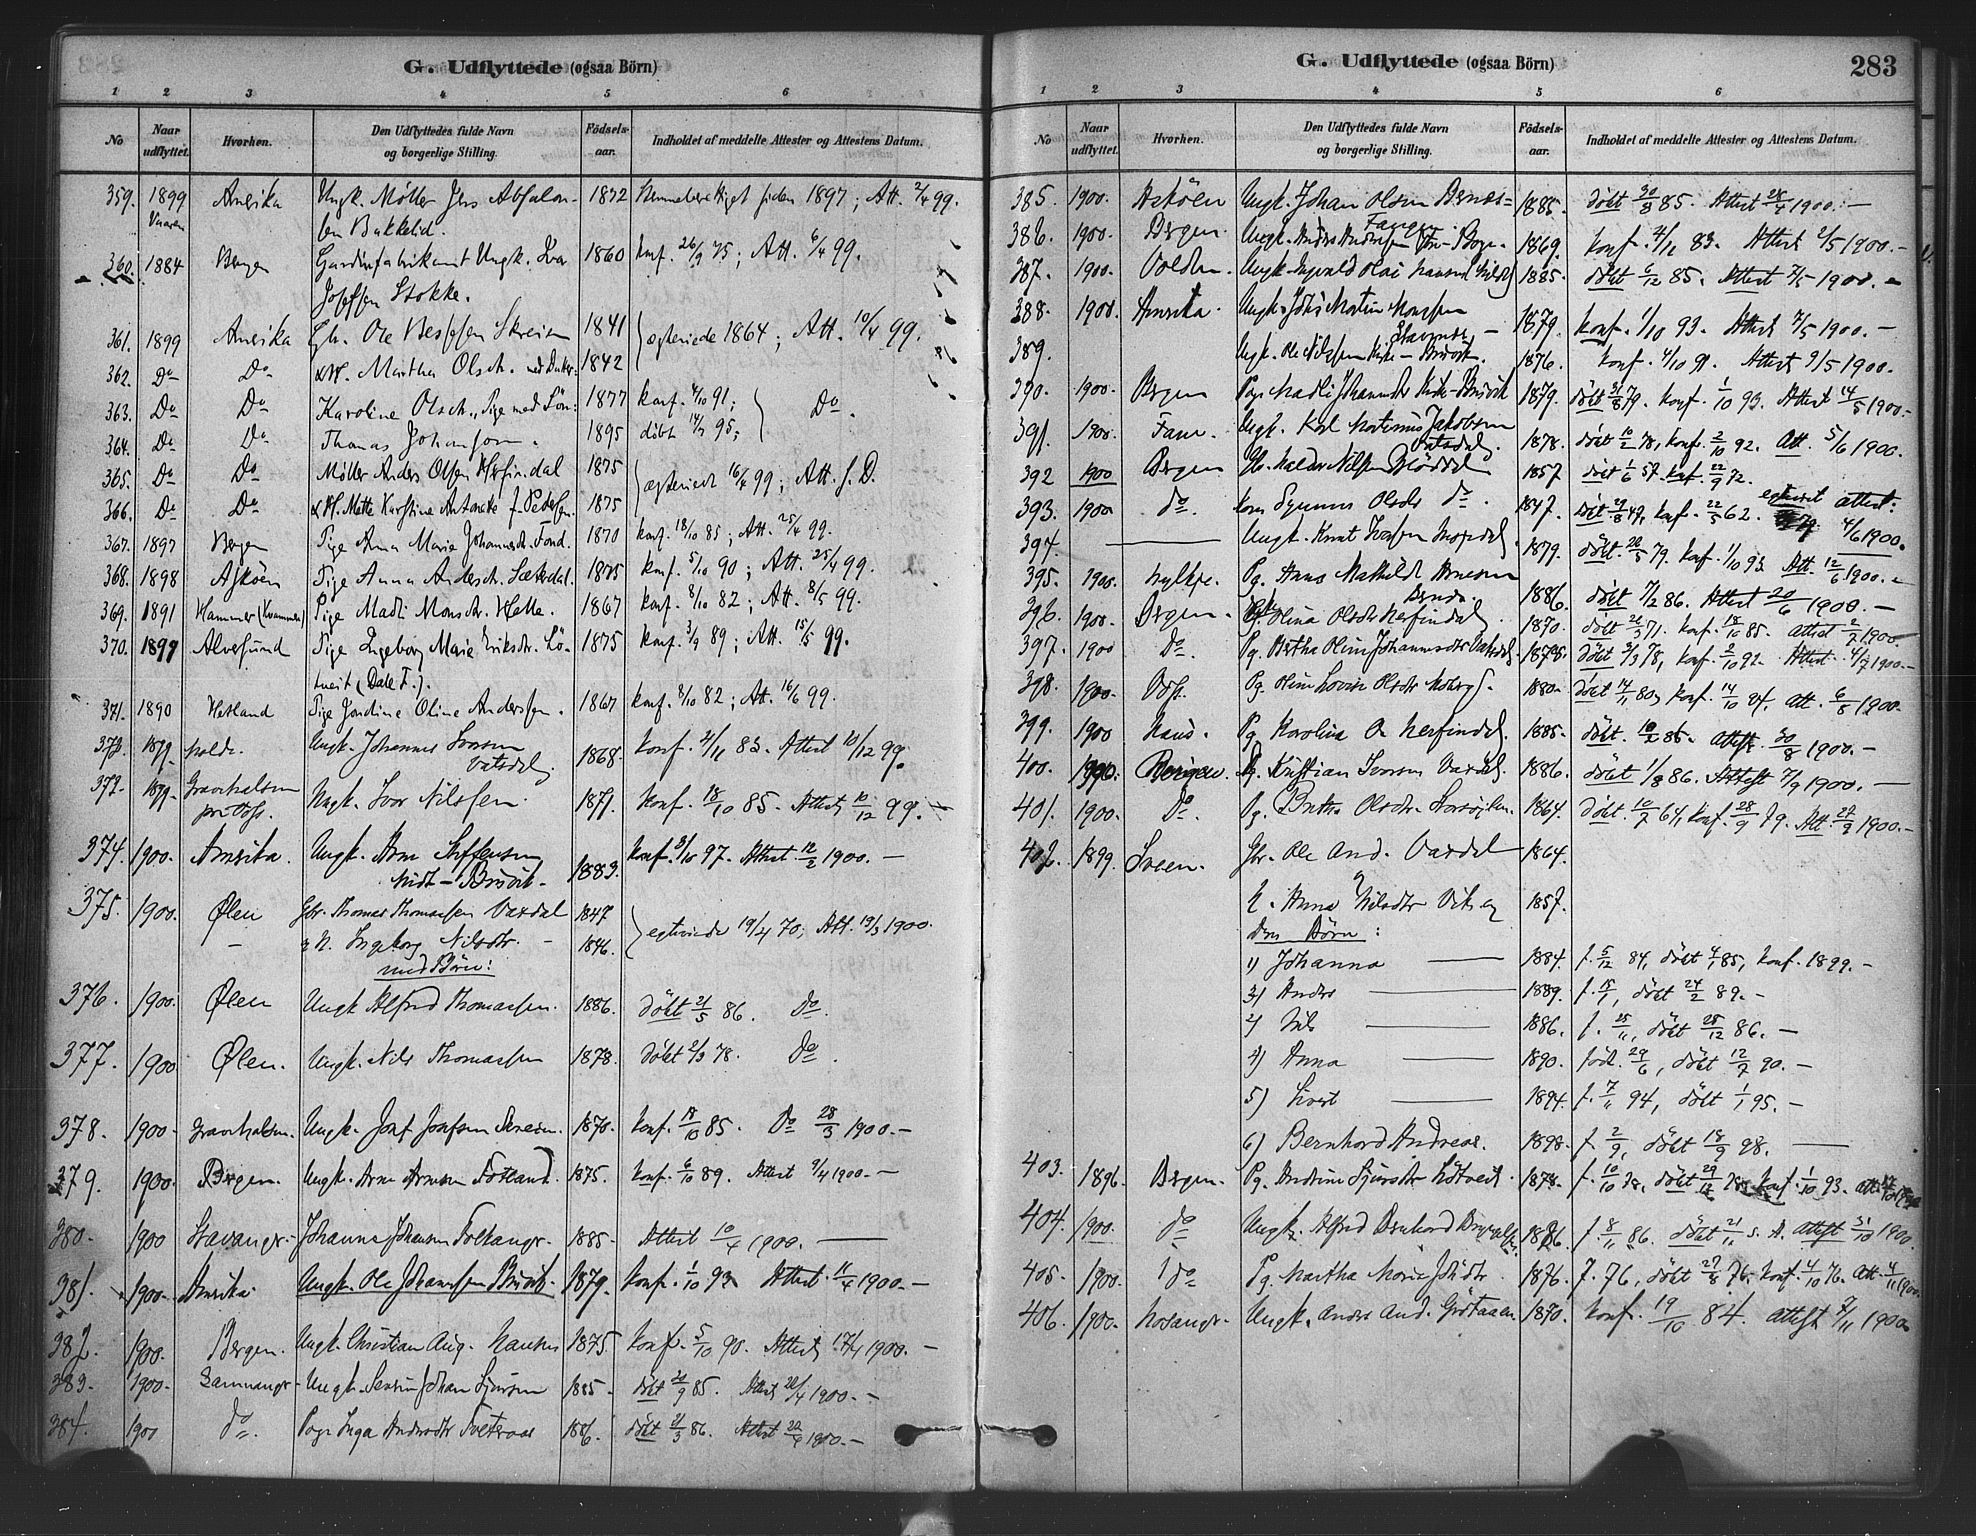 G. Udflyttede (ogsaa Börn)
1 2 3 4 5 6
No Naar udflyttet. Hvorhen. Den Udflyttedes fulde Navn og borgerlige Stilling. Födsels-aar. Indholdet af meddelte Attester og Attestens Datum.
359. 1899 Amerika Ungk. Møller Jens Absalon- 1872 hjemmeværende siden 1897; Att. 2/4 99.
Vaaren sen Bakkelid.
360. 1884 Bergen Gardinfabrikant Ungk. Ivar 1860 konf. 26/9 75; Att. 6/4 99.
Josefsen Stokke.
361. 1899 Amerika Gh. Ole Bessesen Skreien 1841 ægteviede 1864; Att. 10/4 99.
362. Do Do & H. Martha Olsdr. med Datter 1842
363. Do Do Karoline Olsdr., Pige med Søn: 1877 konf. 4/10 91; Do.
364. Do Do Thomas Johansson. 1895 døbt 14/7 95;
365. Do Do Møller Anders Olsen Herfindal 1875 ægteviede 16/4 99; Att. s. D.
366. Do Do & H. Mette Karstine Antonette f. Pedersen. 1875
367. 1897 Bergen Pige Anna Marie Johannesdr. Fond. 1870 konf. 18/10 85; Att. 25/4 99.
368. 1898 Askøen Pige Anna Andersdr. Sætredal. 1875 konf. 5/10 90; Att. 25/4 99.
369. 1891 Hammer (Kvammen) Pige Madli Monsdr. Helle. 1867 konf. 8/10 82; Att. 8/5 99.
370. 1899 Alversund Pige Ingeborg Marie Eriksdr. Lö- 1875 konf. 3/9 89; Att. 15/5 99.
tveit (Dale F.).
371. 1890 Hetland Pige Jondine Oline Anderssen. 1867 konf. 8/10 82; Att. 16/6 99.
372. 1899. Molde. Ungk. Johannes Ivarsen 1868. konf. 4/11 83. Attest 10/12 99.
Vatsdal.
372. 1899. Gravehalsen Ungk. Ivar Nilssen. 1871. konf. 18/10 85. Attest 10/12 99.
pr. Voss.
374. 1900. Amerika. Ungk. Arne Steffensen 1883. konf. 3/10 97. Attest 12/2 1900.
Midt-Bruvik.
375. 1900. Ølen Gbr. Thomas Thomassen Vaxdal 1847 egteviede 19/4 70; Att. 19/3 1900.
& H. Ingeborg Nilsdtr. 1846.
med Børn:
376. 1900. Ølen Ungk. Alfred Thomassen. 1886. döbt 21/5 86. Do.
377. 1900 Ølen. Ungk. Nils Thomassen 1878. döbt 2/3 78. Do
378. 1900. Gravehalsen. Ungk. Josef Josefsen Skreien. 1870. konf. 18/10 85. Do 28/3 1900.
379. 1900. Bergen. Ungk. Arne Arnesen Fosland. 1875. konf. 6/10 89. Attest 9/4 1900.
380. 1900 Stavanger Johannes Johannsen Toskanger. 1885. Attest 10/4 1900.
381. 1900. Amerika. Ungk. Ole Johannessen Bruvik. 1879. konf. 1/10 93 Attest 11/4 1900.
382. 1900. Bergen. Ungk. Christian Aug. Hansen 1875 konf. 5/10 90. Attest 17/4 1900.
383. 1900. Samnanger Ungk. Severin Johan Sjursen 1885. döbt 20/9 85. Attest 20/4 1900.
384. 1900 do. Pige Inga Andersdtr Tveteraas 1886. döbt 21/3 86. Attest 20/4 1900.
G. Udflyttede (ogsaa Börn) 283
1 2 3 4 5 6
No Naar udflyttet. Hvorhen. Den Udflyttedes fulde Navn og borgerlige Stilling. Födsels-aar. Indholdet af meddelte Attester og Attestens Datum.
385. 1900. Askøen Ungk. Johan Olsen Bernes= 1885. döbt 30/8 85. Attest 28/4 1900.
Fanger.
386. 1900. Bergen. Ungk. Anders Andersen 1869. konf. 4/11 83. Attest 2/5 1900.
387. 1900. Volden. Ungk. Ingvald Olai Hansen 1885. döbt 6/12 85. Attest 2/5 1900.
388. 1900. Amerika. Ungk. Johs Martin Monssen 1879. konf. 1/10 93. Attest 7/5 1900.
Stavenes
389. Ungk. Ole Nilssen Kirke-Bruvik. 1876. konf. 4/10 91. Attest 9/5 1900.
390. 1900. Bergen Pige Madli Johannesdr Kirke-Bruvik 1879. döbt 31/8 79. konf. 1/10 93. Attest 14/5 1900.
391. 1900. Fane. Ungk. Karl Martinus Jakobsen 1878. döbt 10/2 78, konf. 2/10 92. Att. 5/6 1900.
Vatsdal.
392 1900 Bergen Gbr. Halder Nilsen 1857 döbt 1/6 57. konf. 22/9 72.
393. 1900 do. kone Synneve Olsdr do. 1847. döbt 29/8 47, konf. 22/5 62. egteviet 79. Attest: 4/6 1900.
394. Ungk. Knut Ivarsen 1879. döbt 26/5 79. konf. 1/10 93. Att. 12/6 1900.
395. 1900. Pg. Anna Mathilde Arnesen 1886. döbt 7/2 86. Attest 20/6 1900.
396. 1900. Bergen. Pg. Olina Olsdr Herfindal. 1870. döbt 26/3 71. konf. 18/10 85. Attest 2/7 1900
397. 1900 Do. Pg. Bertha Oline Johannesdtr Vatsdal 1878. döbt 3/3 78, konf. 2/10 92. Attest 4/7 1900.
398. 1900. Voss. Pg. Oline Lovise Olsdr 1880. döbt 14/11 80, konf. 14/10 94. Att. 6/8 1900.
399. 1900 Haus. Pg. Karolina O. Herfindal. 1885. döbt 10/2 85. Attest. 30/8 1900.
400. 1900. Bergen. Pg. Kristian Ivarsen Vaxdal. 1886. döbt 1/8 86. Attest 7/9 1900.
401. 1900. Do. Pg. Brita Olsdr. 1864. döbt. 10/7 64, konf. 28/9 79. Att. 27/9 1900.
402. 1899. Sveen. Gbr. Ole And. Vaxdal 1864.
H. Anna Nilsdtr Vik og 1857.
deres Börn:
1) Johanna 1884. f. 5/12 84, döbt 4/1 85, konf. 1899.
3) Anders 1889. f. 15/1, döbt 24/2 89.
2) Nils 1886. f. 25/11, döbt 28/12 86.
4) Anna 1890. föd. 29/6, döbt 12/7 90.
5) Sivert 1894. f. 7/11 94, döbt 1/1 95.
6) Bernhard Andreas. 1898. f. 2/9, döbt 18/9 98.
403. 1896. Bergen. Pg. Andrine Sjursdtr Lötveit. 1878. f. 10/10 78, döbt 29/12 78, konf. 1/10 93.
404. 1900. do Ungk. Alfred Bernhard 1886. f. 8/11 86. döbt 21/11 s. A. Attest 31/10 1900.
405. 1900. do Pg. Martha Maria Johsdtr. 1876. f. 76, döbt 27/8 76, konf. 4/10 76. Att. 4/11 1900.
406. 1900. Hosanger. Ungk. Anders And. Grötaaen 1870. konf. 19/10 84. Attest 7/11 1900